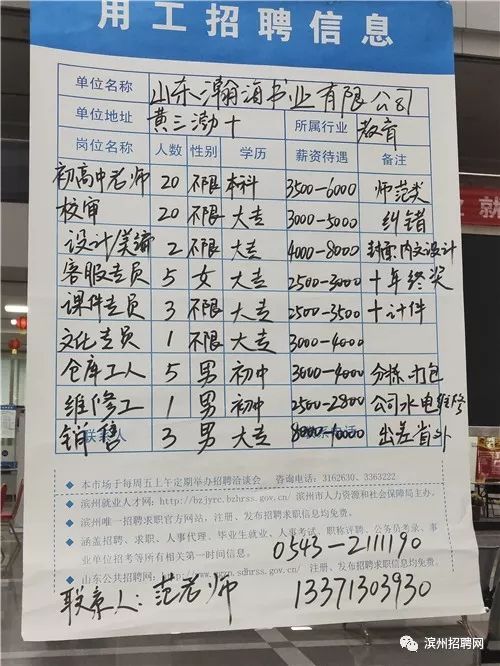 用工招聘信息
单位名称 山东瀚海书业有限公司
单位地址 黄三渤十 所属行业 教育
岗位名称 人数 性别 学历 薪资待遇 备注
初高中老师 20 不限 本科 3500-6000 师范类
校审 20 不限 大专 3000-5000 纠错
设计/美编 2 不限 大专 4000-8000 封面、内文设计
客服专员 5 女 大专 2500-3000 十年终奖
课件专员 3 不限 大专 2500-3500 十计件
文化专员 1 不限 大专 3000-4000
仓库工人 5 男 初中 3000-4000 分拣、打包
维修工 1 男 初中 2500-2800 公司水电维修
销售 3 男 大专 8000-10000 出差省外
◆ 本市场于每周五上午定期举办招聘洽谈会 咨询电话：3162630、3363222
◆ 滨州就业人才网：http://bzjyrc.bzhrss.gov.cn/ 滨州市人力资源和社会保障局主办。
◆ 滨州唯一招聘求职官方网站，注册、发布招聘求职信息均免费。
◆ 涵盖招聘、求职、人事代理、毕业生就业、人事考试、职称评聘、公务员考录、事
业单位招考等所有相关第一时间信息。
0543-2111190
◆ 山东公共招聘网： 注册、发布招聘求职信息均免费。
联系人：范老师 13371303930
就
滨州招聘网